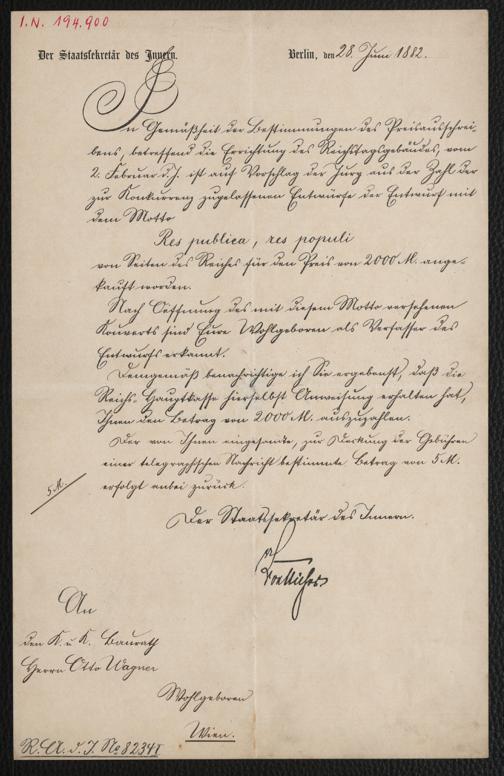 I.N. 194.900
Der Staatssekretär des Innern.
Berlin, den 28. Juni 1882.
In Gemäßheit der Bestimmungen des Preisausschrei-
bens, betreffend die Errichtung des Reichstagsgebäudes, vom
2. Februar d. J. ist auf Vorschlag der Jury aus der Zahl der
zur Konkurrenz zugelassenen Entwürfe der Entwurf mit
dem Motto
Res publica, res populi
von Seiten des Reiches für den Preis von 2000 M. ange-
kauft worden.
Nach Oeffnung des mit diesem Motto versehenen
Kouverts sind Eure Wohlgeboren als Verfasser des
Entwurfs erkannt.
Demgemäß benachrichtige ich Sie ergebenst, daß die
Reichs-Hauptkasse hierselbst Anweisung erhalten hat,
Ihnen den Betrag von 2000 M. auszuzahlen.
Der von Ihnen eingesandte, zur Deckung der Gebühren
einer telegraphischen Nachricht bestimmte Betrag von 5 M.
erfolgt anbei zurück.
5 M.
Der Staatssekretär des Innern.
Boetticher
An
den K. u. K. Baurath
Herrn Otto Wagner
Wohlgeboren
Wien.
R. A. d. J. No 8234 I